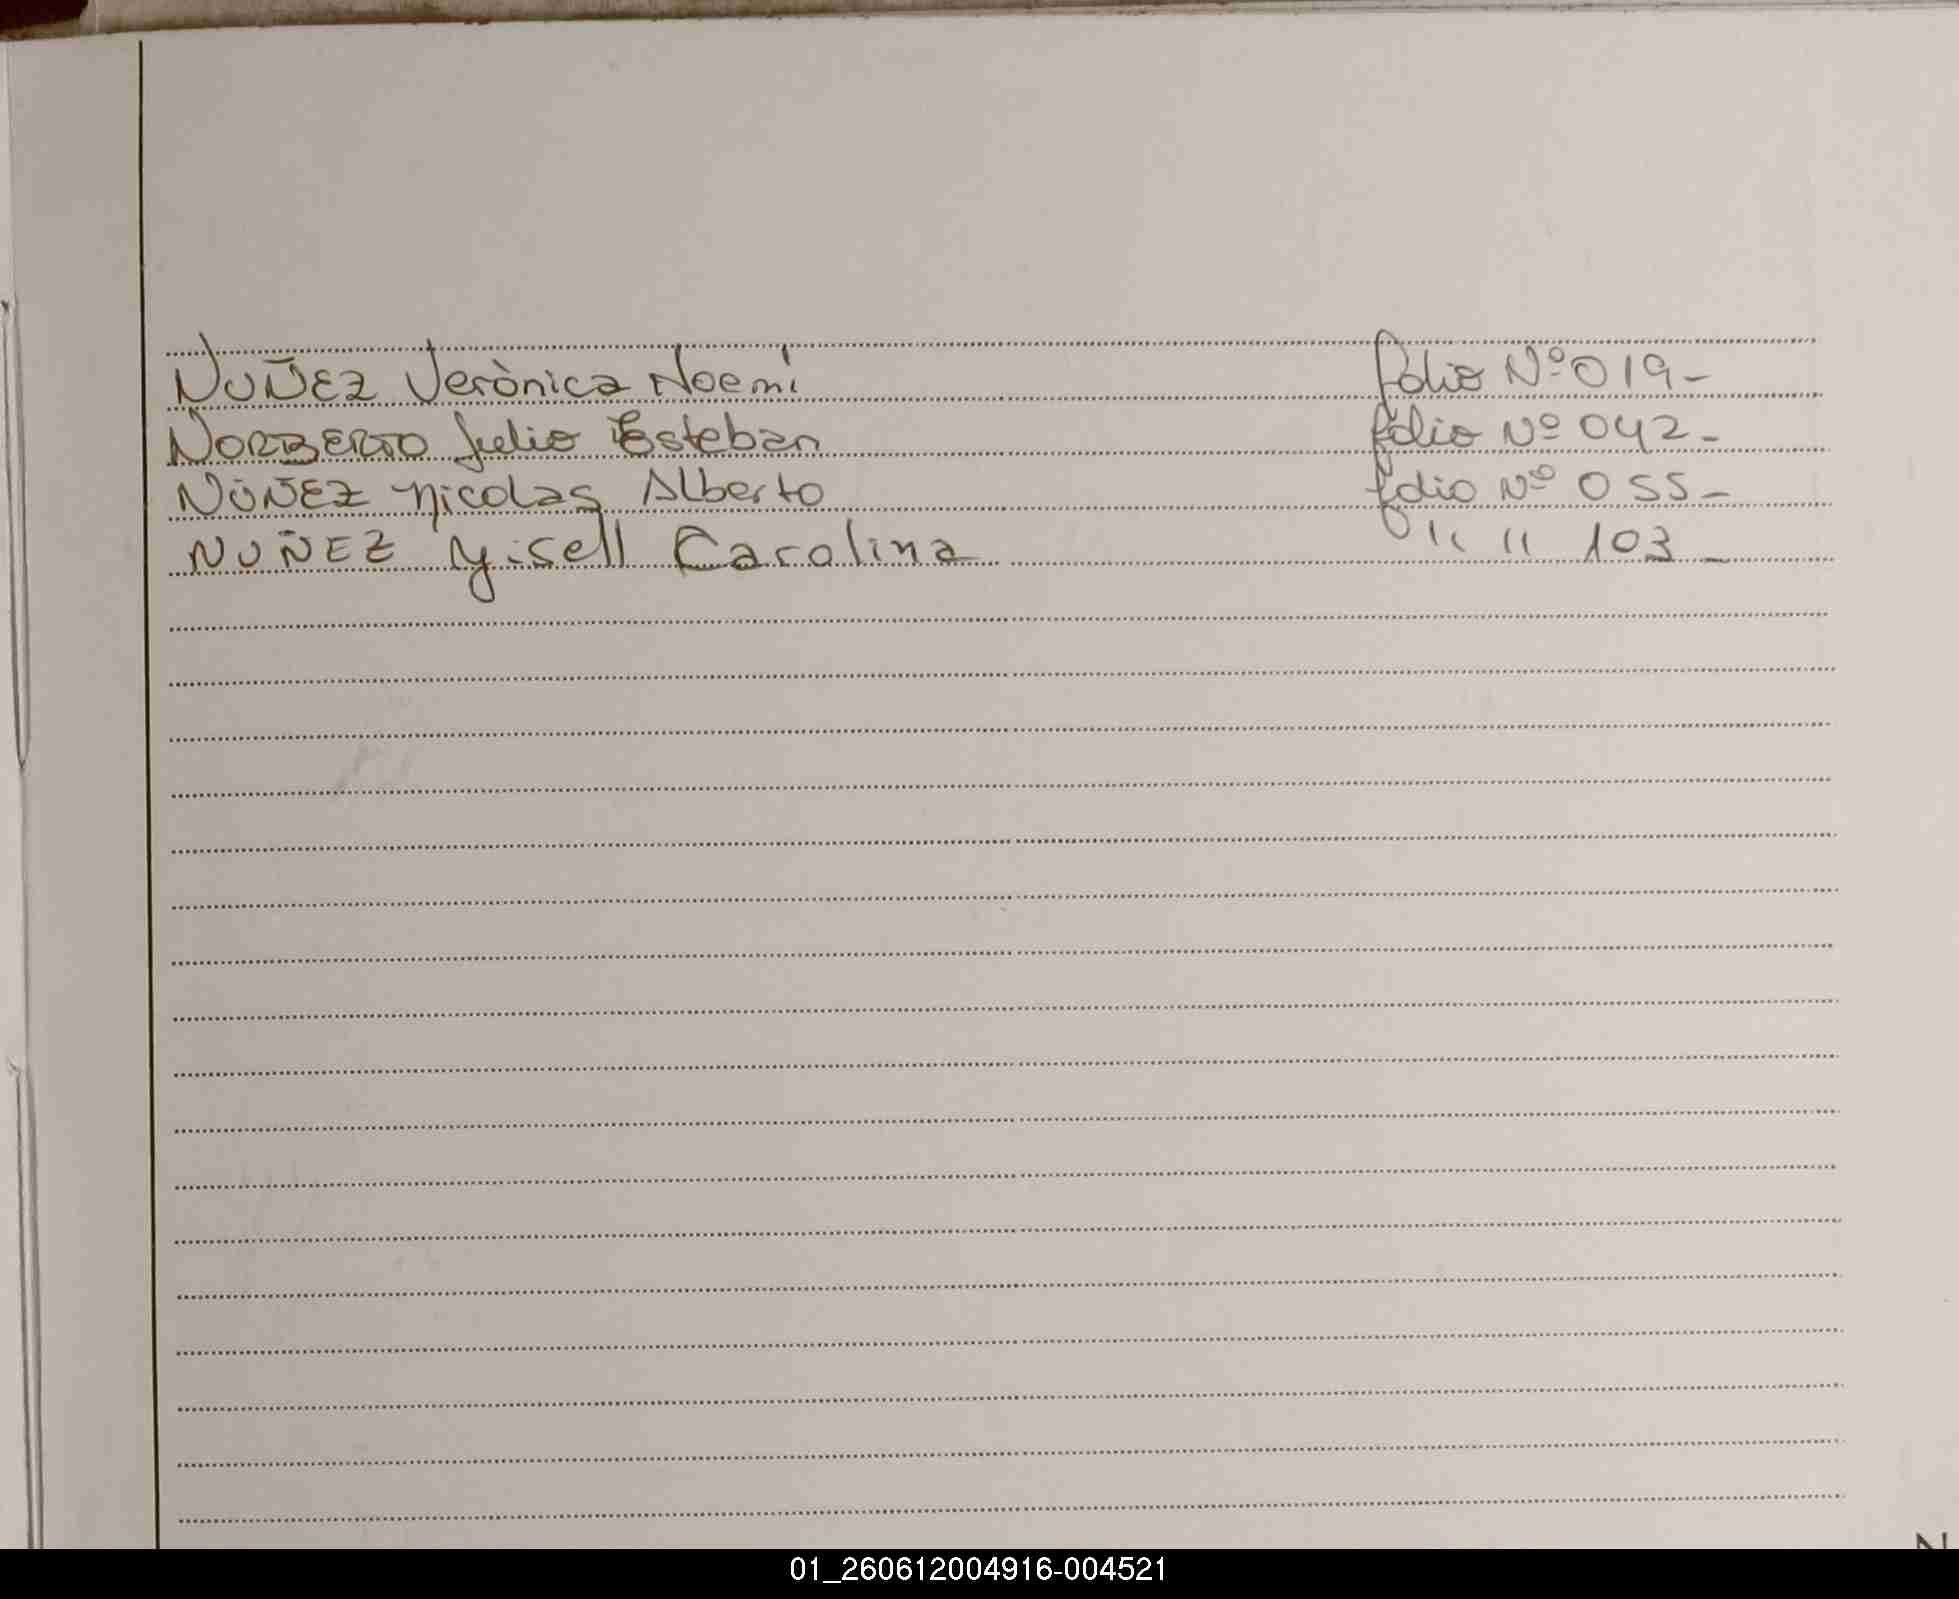 NUÑEZ Verònica Noemí folio Nº 019-
NORBERTO Julio Esteban folio Nº 042-
NÚÑEZ Nicolas Alberto folio Nº 055-
NUÑEZ Yisell Carolina " " 103-
N
01_260612004916-004521